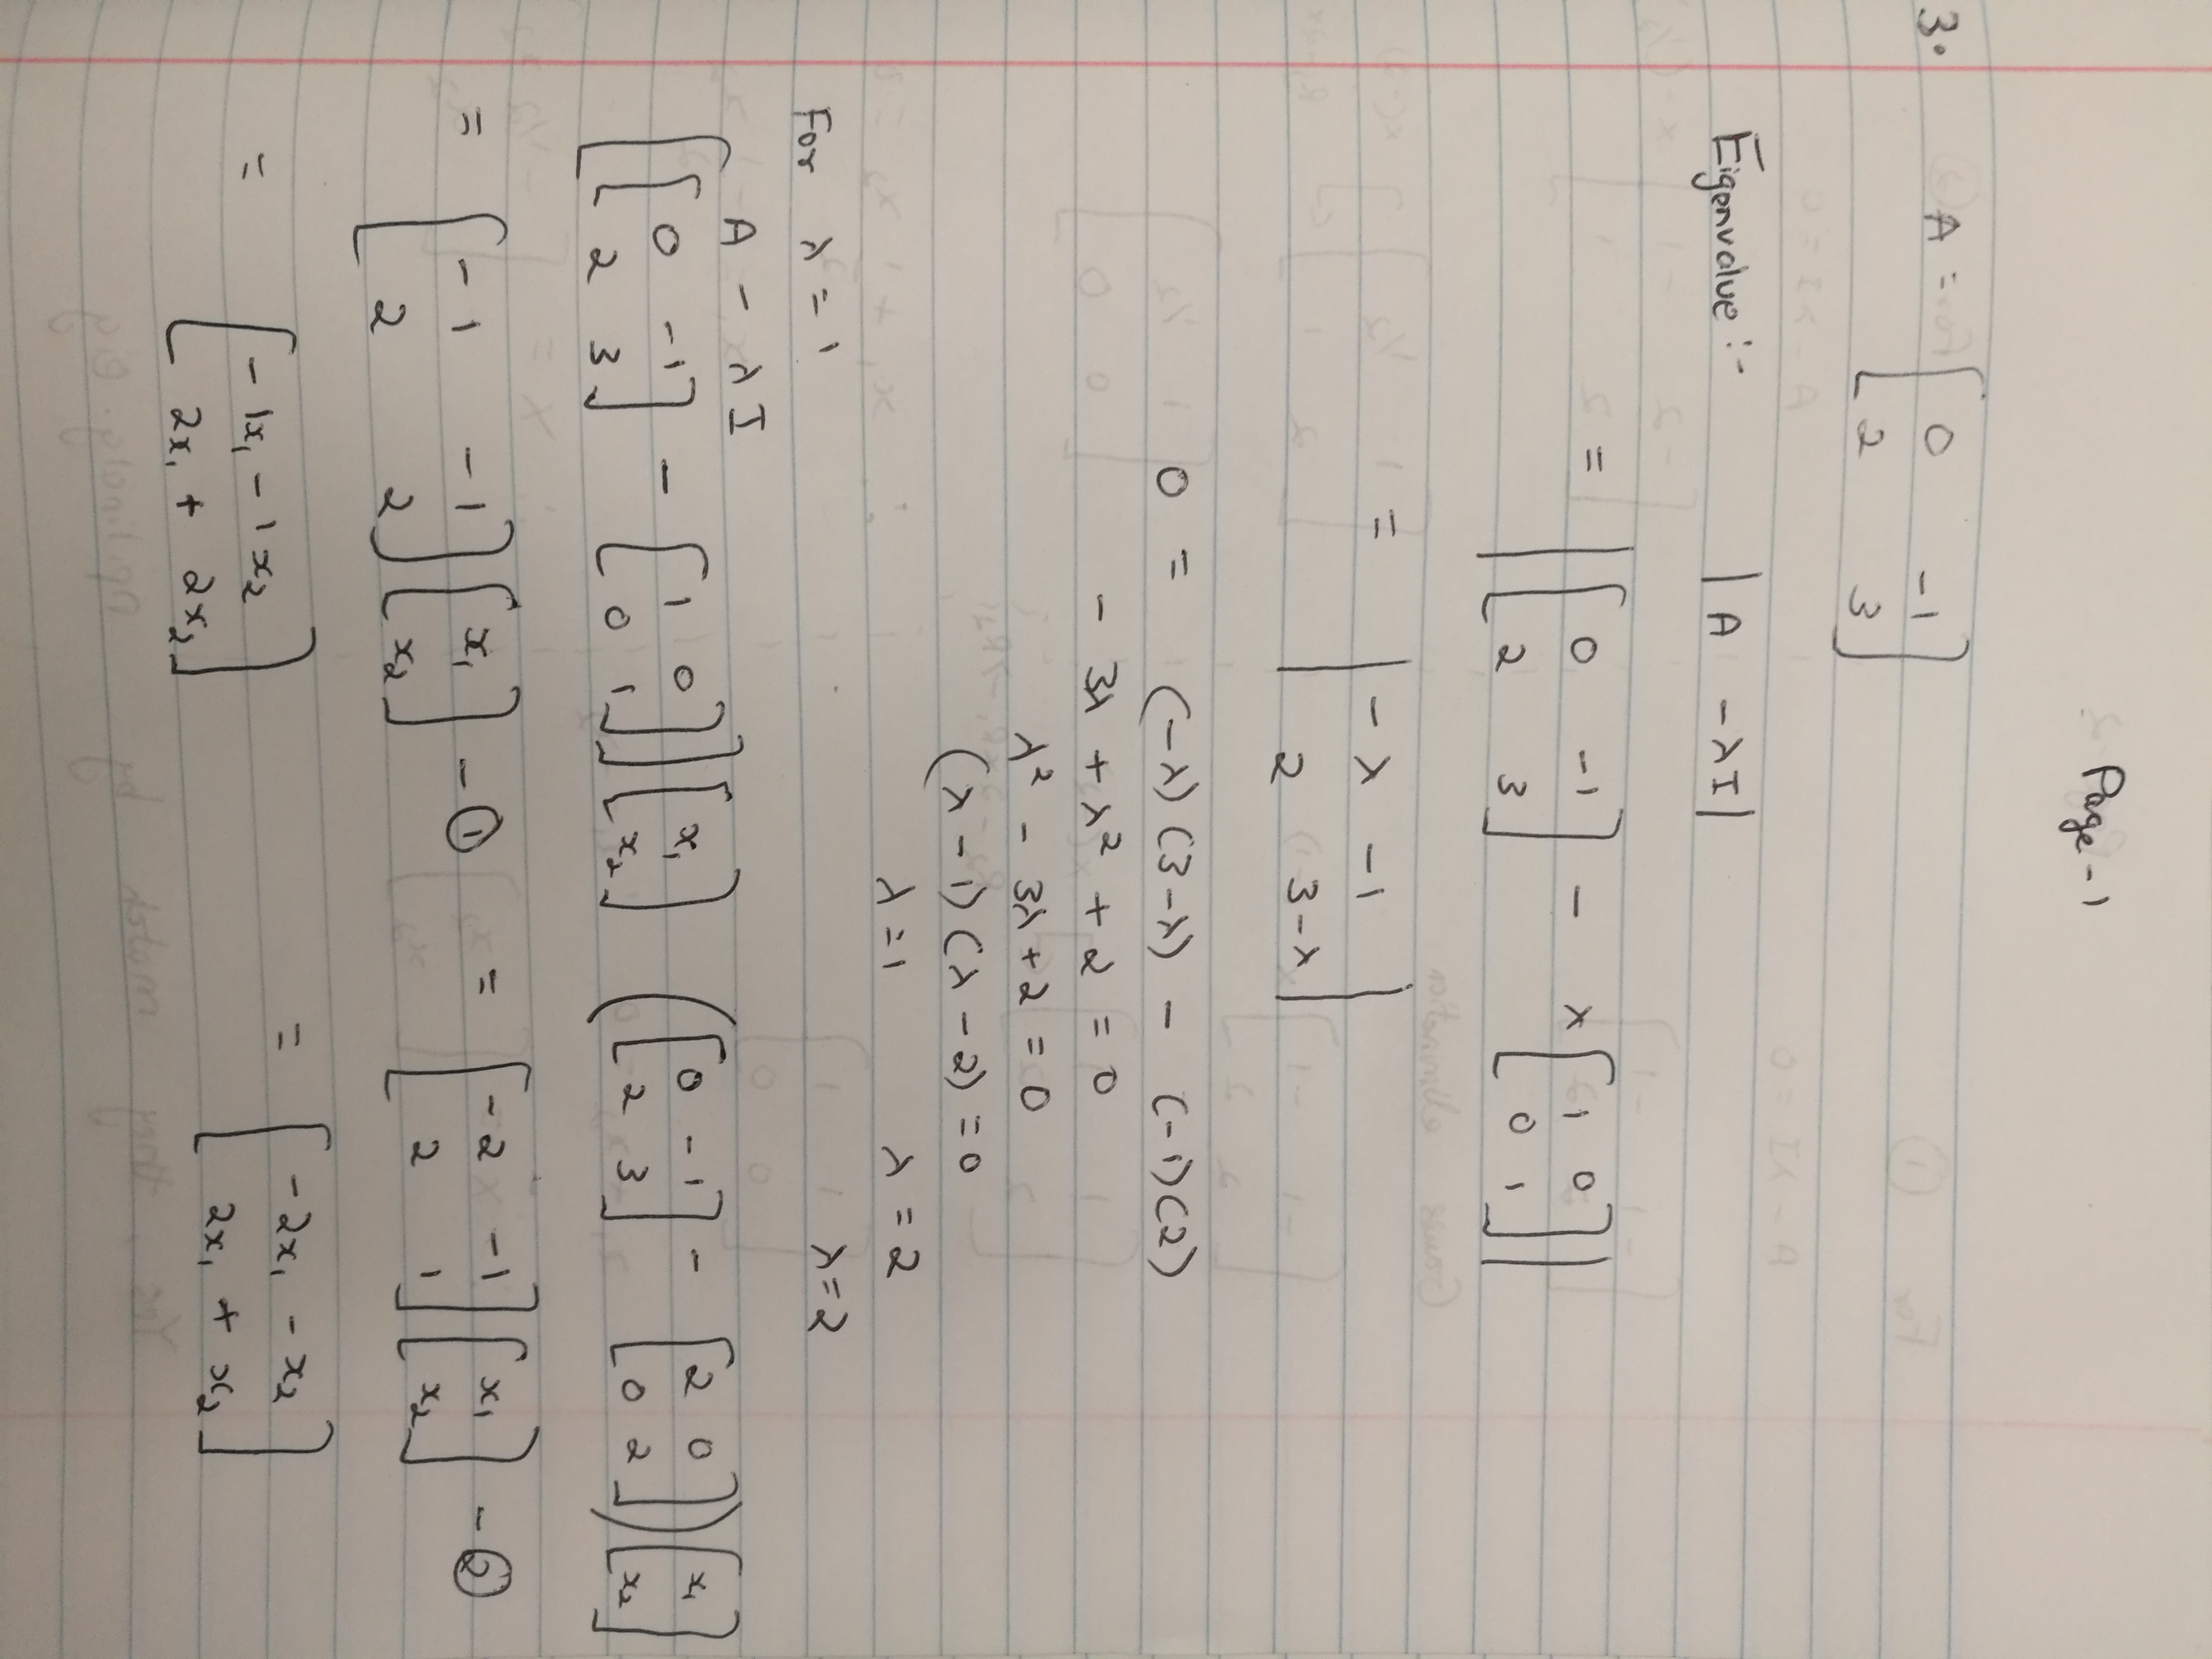 Page-1
3. A = [ 0 -1
2 3 ]
Eigenvalue :- | A - λI |
= | [ 0 -1
2 3 ] - λ [ 1 0
0 1 ] |
= | -λ -1
2 3-λ |
0 = (-λ)(3-λ) - (-1)(2)
- 3λ + λ² + 2 = 0
λ² - 3λ + 2 = 0
(λ - 1)(λ - 2) = 0
λ = 1 λ = 2
For λ = 1 λ = 2
A - λ I
[ [ 0 -1
2 3 ] - [ 1 0
0 1 ] ] [ x₁
x₂ ] ( [ 0 -1
2 3 ] - [ 2 0
0 2 ] ) [ x₁
x₂ ]
= [ -1 -1
2 2 ] [ x₁
x₂ ] - ① = [ -2 -1
2 1 ] [ x₁
x₂ ] - ②
= [ -1x₁ - 1x₂
2x₁ + 2x₂ ] = [ -2x₁ - x₂
2x₁ + x₂ ]